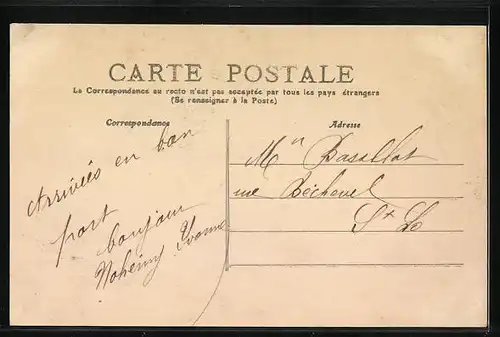 CARTE POSTALE
La Correspondance au recto n'est pas acceptée par tous les pays étrangers
(Se renseigner à la Poste)
Correspondance
Adresse
Arrivées en bon
port
bonjour
Yvonne
rue Béchevel
St Lo